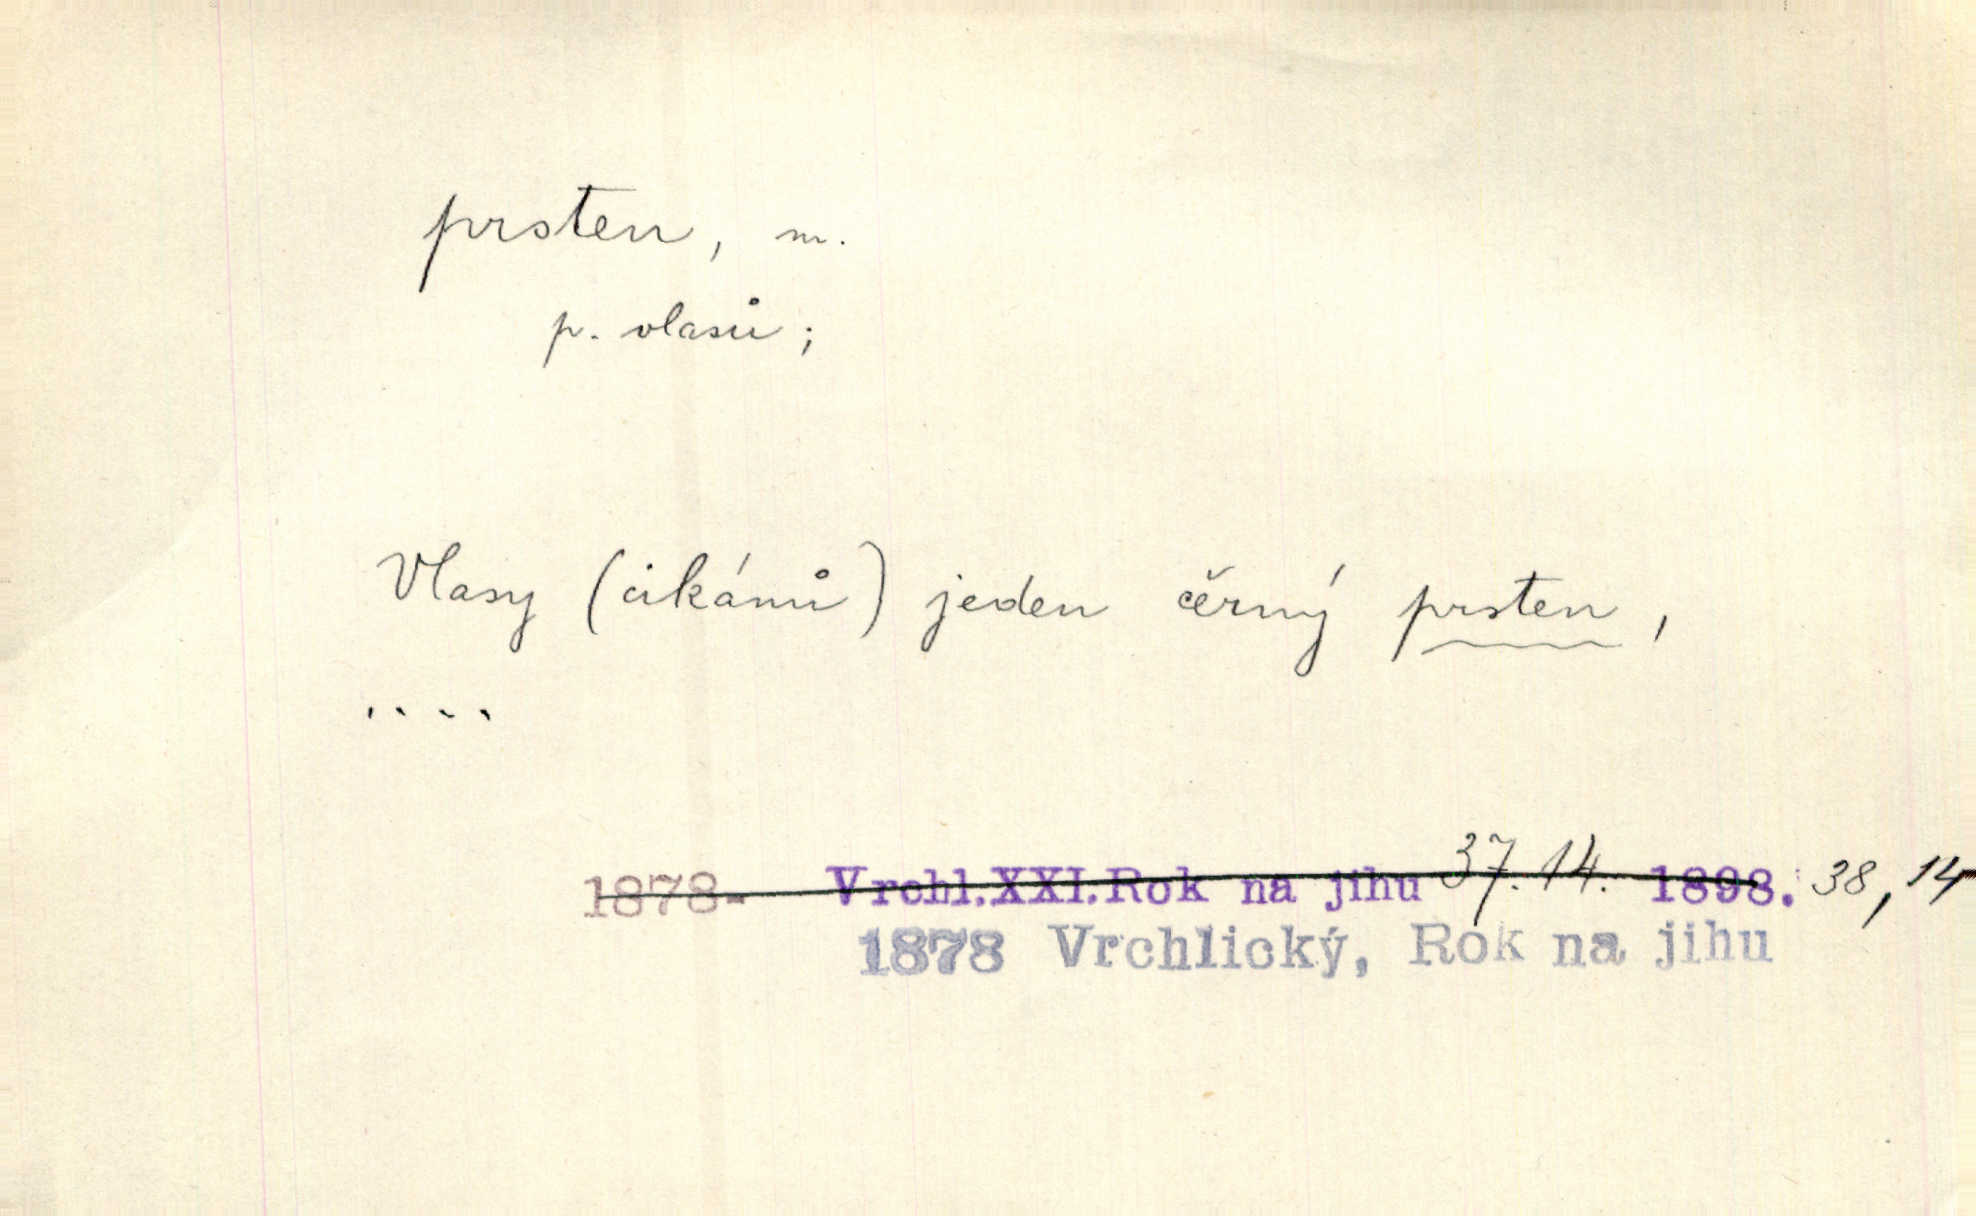 prsten, m.
p. vlasů;
Vlasy (cikánů) jeden černý prsten,
....
1878- Vrchl.XXI.Rok na jihu 37.14. 1898. 38, 14
1878 Vrchlický, Rok na jihu